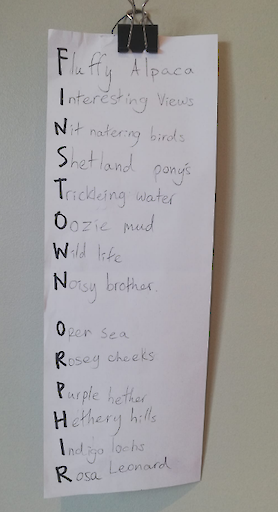 Fluffy Alpaca
Interesting Views
Nit natering birds
Shetland pony's
Trickleing water
Oozie mud
Wild life
Noisy brother.
Open sea
Rosey cheeks
Purple hether
Hethery hills
Indigo lochs
Rosa Leonard